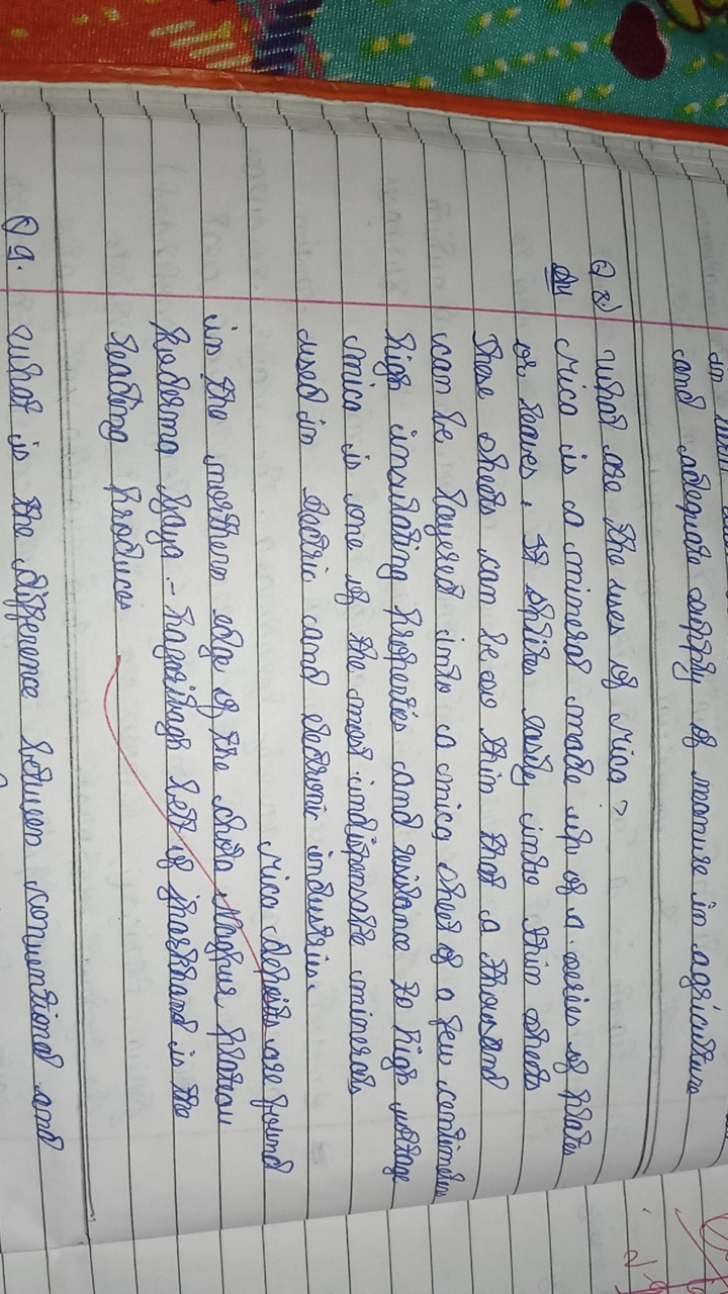 and adequate supply of manure in agriculture
Q 8) What are the uses of Mica?
Mica is a mineral made up of a series of plates
or leaves. It splits easily into thin sheets
These sheets can be so thin that a thousand
can be layered into a mica sheet of a few centimeters
high insulating properties and resistance to high voltage
mica is one of the most indispensable minerals
used in electric and electronic industries.
Mica deposits are found
in the northern edge of the Chota Nagpur plateau
Koderma Gaya - Hazaribagh belt of Jharkhand is the
leading producer
Q 9. What is the difference between conventional and